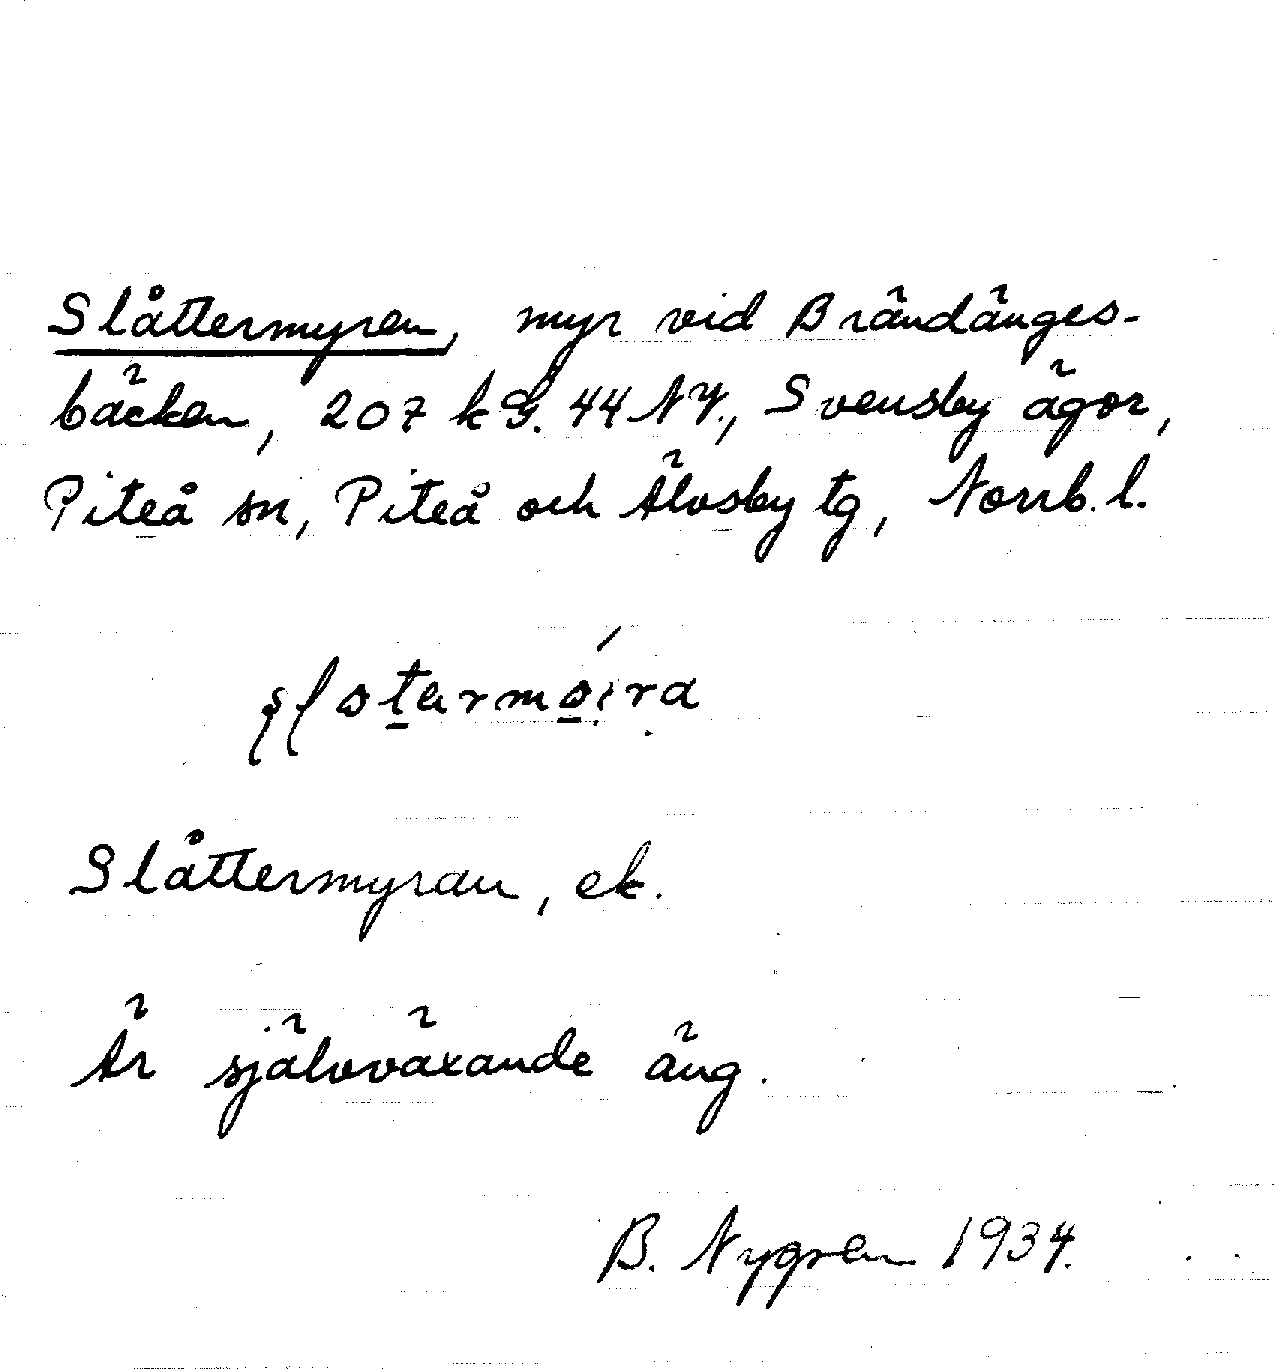 Slåttermyren, myr vid Brändänges-
bäcken, 207 k G. 44 NV., Svensby ägor,
Piteå sn, Piteå och Älvsby tg, Norrb. l.
Slåttermyran, ek.
Är självväxande äng.
B. Nygren 1934.